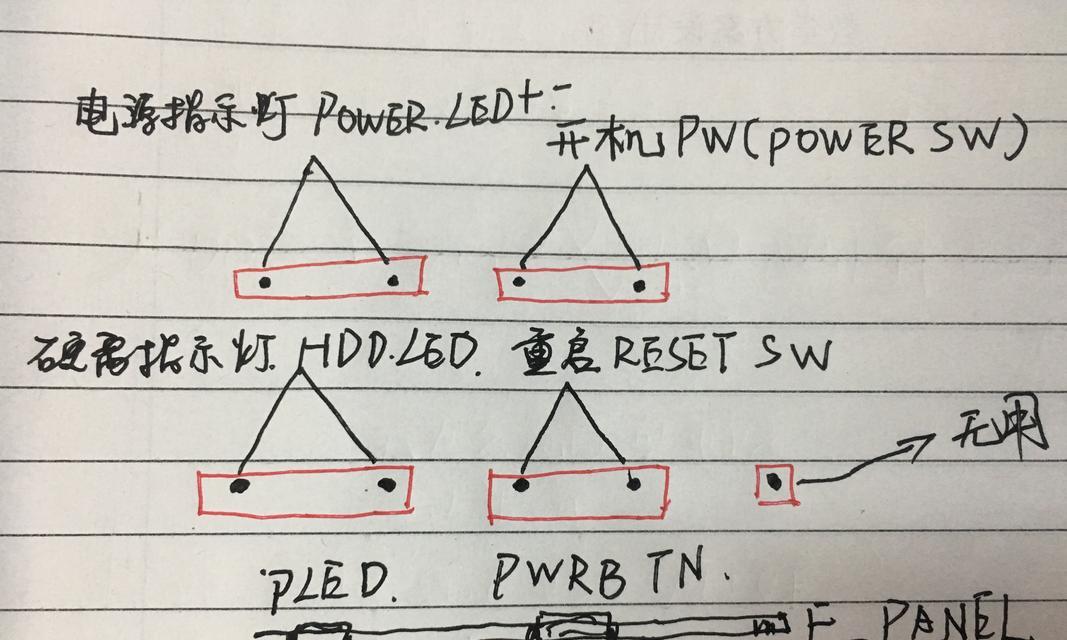 电源指示灯 POWER.LED+-
开机 PW(POWER SW)
硬盘指示灯. HDD.LED.
重启 RESET SW
无用
PLED.
PWRBTN.
F_PANEL